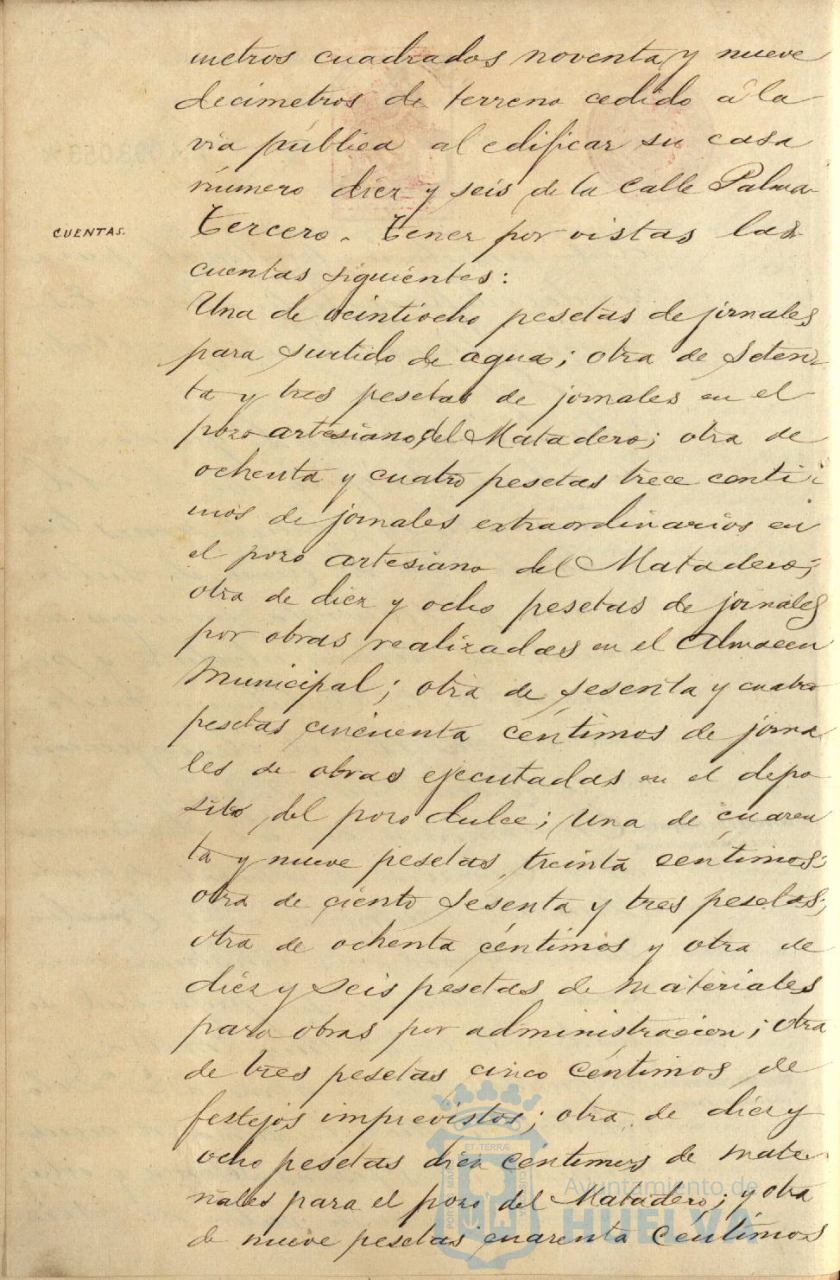 metros cuadrados noventa y nueve
decímetros de terreno cedido a la
vía pública al edificar su casa
número diez y seis de la calle Palma
CUENTAS.
Tercero. Tener por vistas las
cuentas siguientes:
Una de veintiocho pesetas de jornales
para surtido de agua; otra de seten-
ta y tres pesetas de jornales en el
pozo artesiano del Matadero; otra de
ochenta y cuatro pesetas trece centi-
mos de jornales extraordinarios en
el pozo artesiano del Matadero;
otra de diez y ocho pesetas de jornales
por obras realizadas en el Almacen
Municipal; otra de sesenta y cuatro
pesetas cincuenta céntimos de jorna
les de obras ejecutadas en el depo
sito del pozo dulce; Una de cuaren
ta y nueve pesetas treinta centimos;
otra de ciento sesenta y tres pesetas;
otra de ochenta céntimos y otra de
diez y seis pesetas de materiales
para obras por administracion; otra
de tres pesetas cinco céntimos de
festejos imprevistos; otra de diez y
ocho pesetas diez céntimos de mate-
riales para el pozo del Matadero; y otra
de nueve pesetas cuarenta centimos
Ayuntamiento de
HUELVA